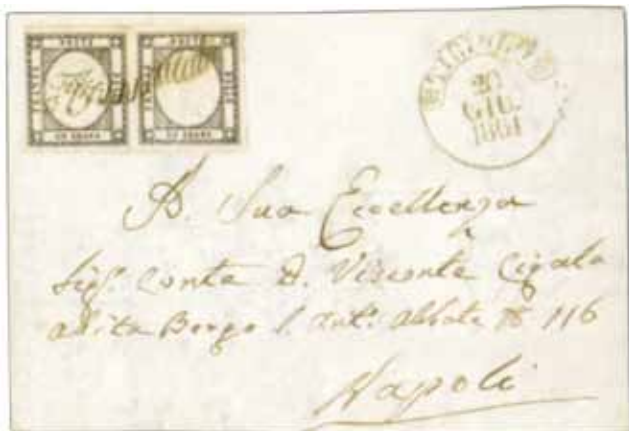 POSTE
POSTE
UN GRANO
UN GRANO
20
GIU.
1861
A Sua Eccellenza
Sig. Conte D. Visconte Cigala
abita Borgo S. Ant. Abbate N 116
Napoli